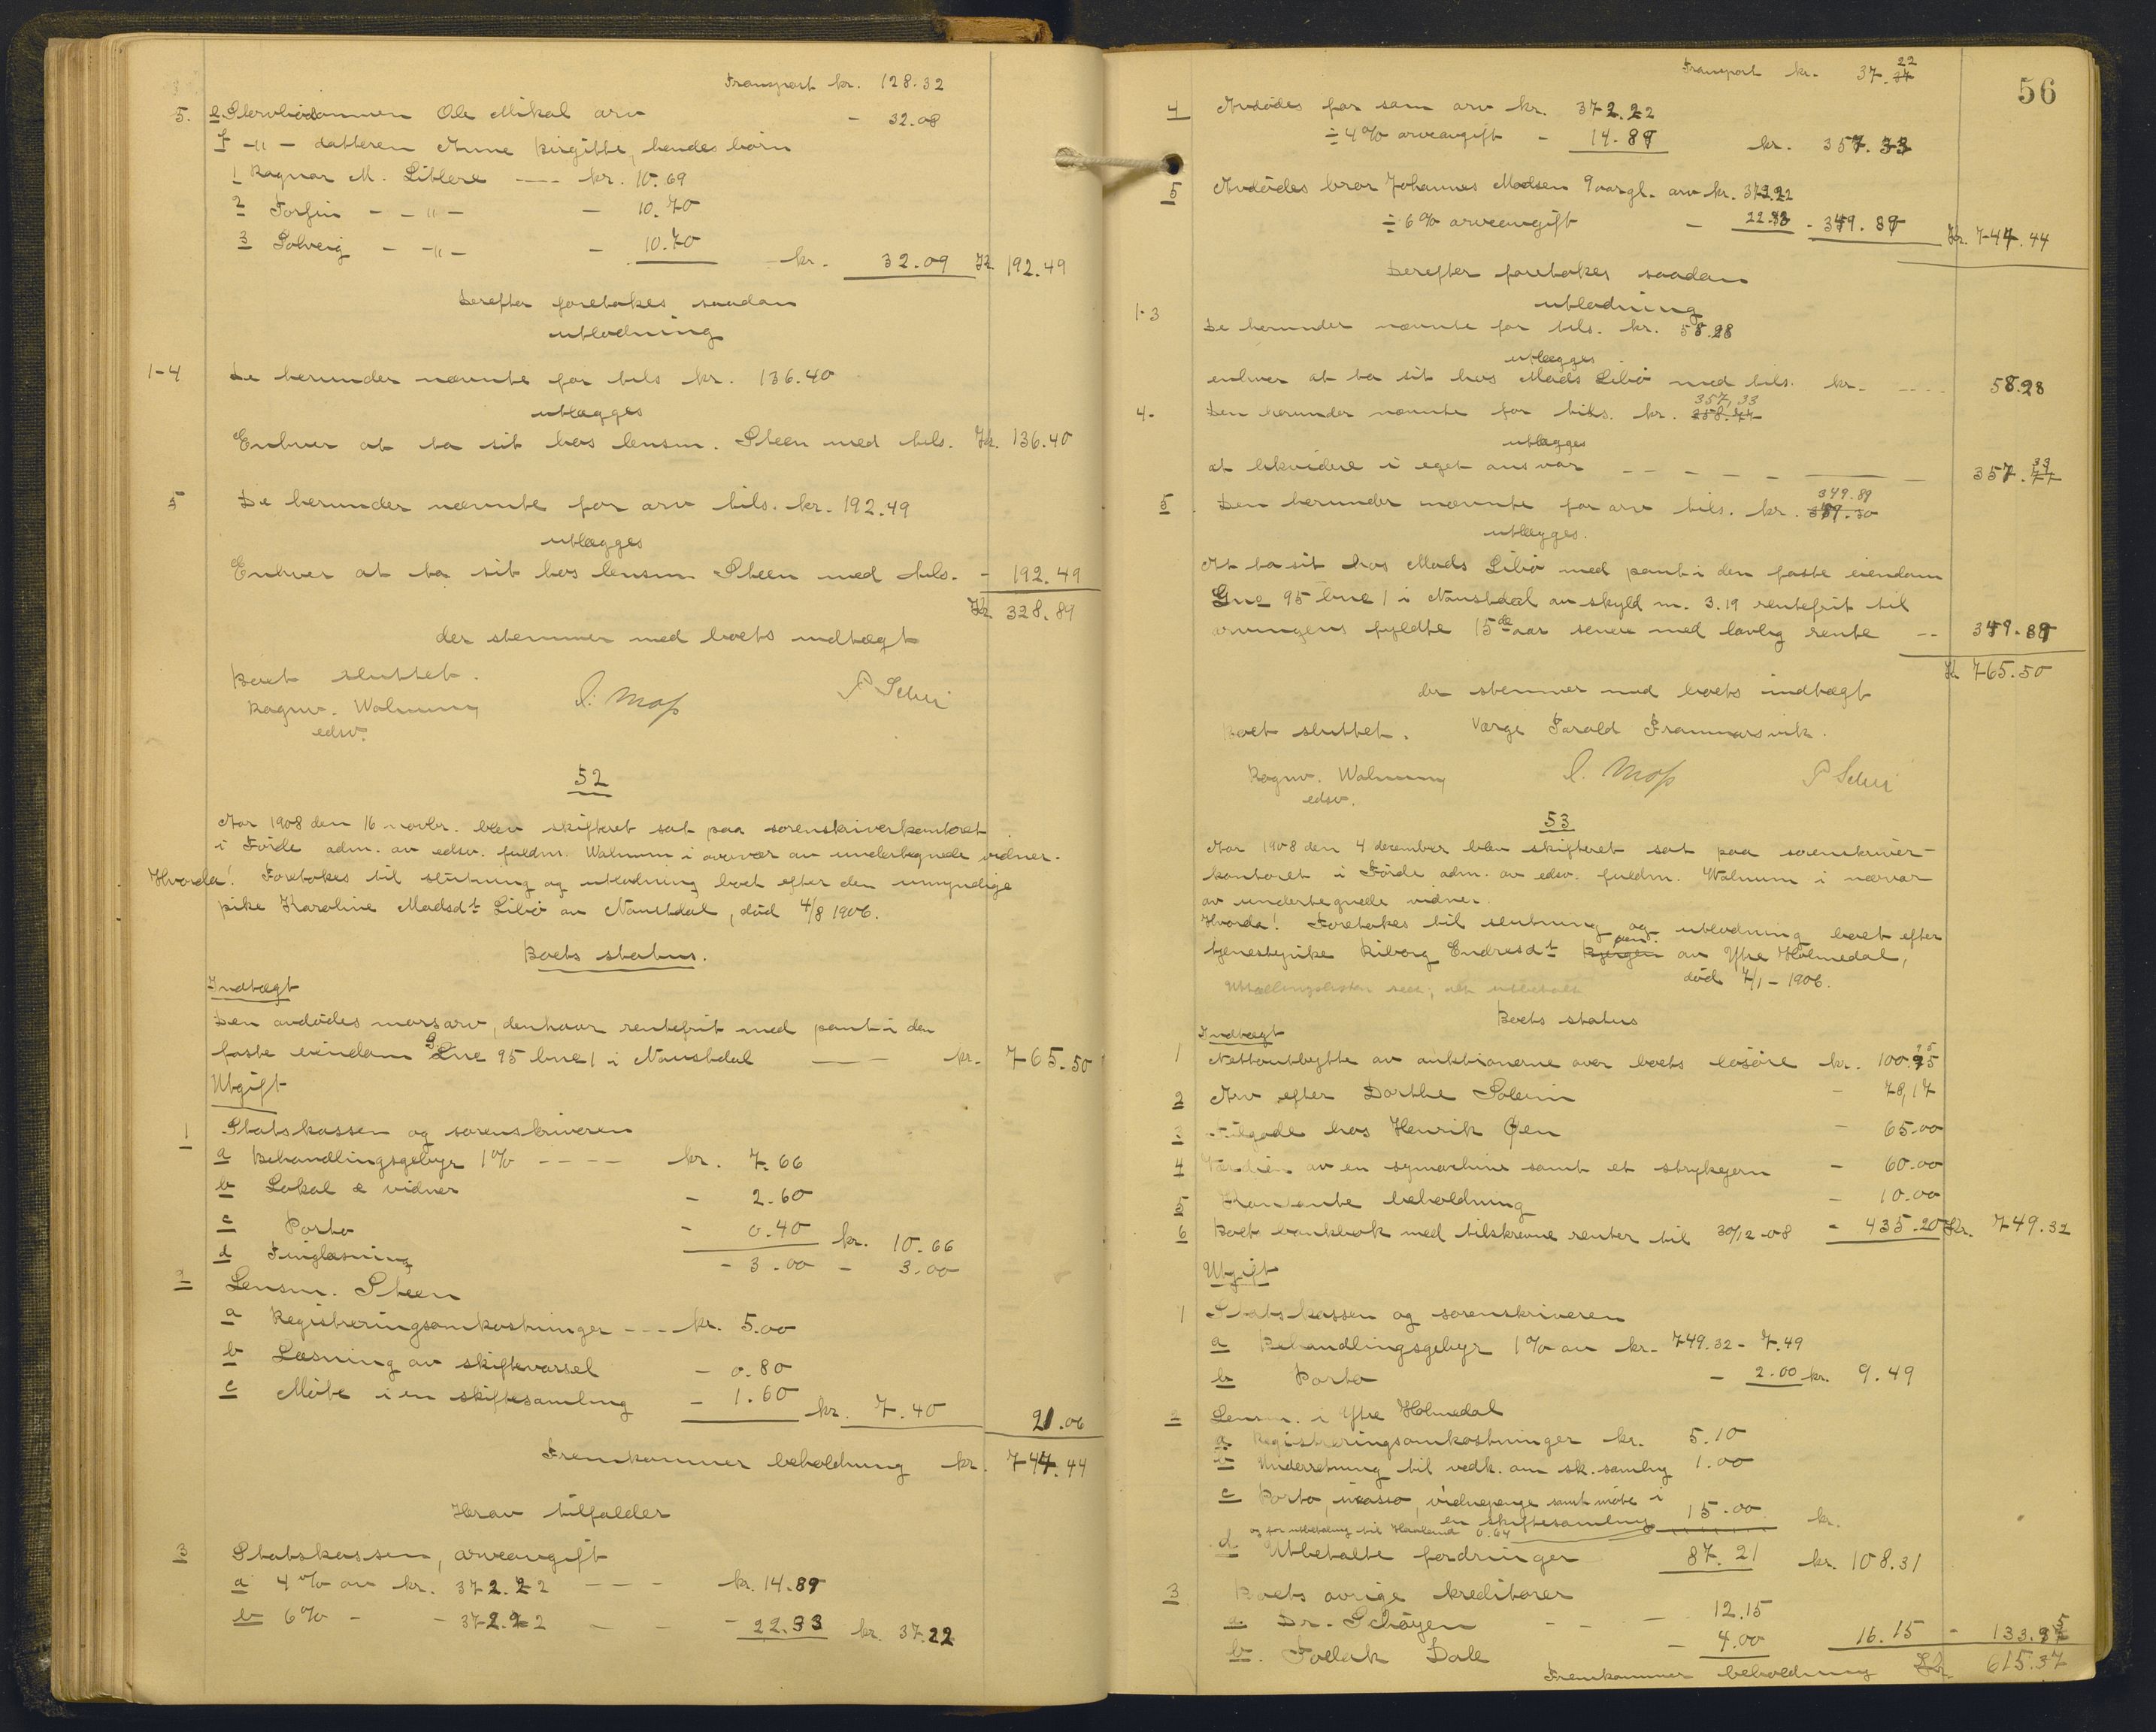 Transport kr. 128.32
5. e Stervbosønnen Ole Mikal arv - 32.08
f -"- datteren Anne Birgitte, hendes børn
1 Ragnar M. Liblere ---- kr. 10.69
2 Torfin - -"- - 10.70
3 Solveig - -"- - 10.70 kr. 32.09 Kr. 192.49
Derefter foretakes saadan
utlodning
1-4 De herunder nævnte for tils kr. 136.40
utlægges
Enhver at ta sit hos lensm. Steen med tils. Kr. 136.40
5 De herunder nævnte for arv tils. kr. 192.49
utlægges
Enhver at ta sit hos lensm Steen med tils. - 192.49
Kr 328.89
der stemmer med boets indtægt
Boet sluttet.
Ragnv. Walnum J. Moss P Schei
edsv.
52
Aar 1908 den 16 novbr. blev skifteret sat paa sorenskriverkontoret
i Førde adm. av edsv. fuldm. Walnum i overvær av undertegnede vidner.
Hvorda! Foretokes til slutning og utlodning boet efter den umyndige
pike Karoline Madsdt Libø av Naustdal, død 4/8 1906.
Boets status.
Indtægt
Den avdødes morsarv, denhaar rentefrit med pant i den
faste eiendom Gno 95 bno 1 i Naustdal ---- kr. 765.50
Utgift
1 Statskassen og sorenskriveren
a Behandlingsgebyr 1% ---- kr. 7.66
b Lokal & vidner - 2.60
c Porto - 0.40 kr. 10.66
d Tinglæsning - 3.00 - 3.00
2 Lensm. Steen
a Registreringsomkostninger --- kr. 5.00
b Læsning av skiftevarsel - 0.80
c Møte i en skiftesamling - 1.60 kr. 7.40 21.06
Fremkommer beholdning kr. 744.44
Herav tilfalder
3 Statskassen, arveavgift
a 4% av kr. 372.22 --- kr. 14.89
b 6% - - 372.22 - - - 22.33 kr. 37.22
56
Transport kr. 37.22
4 Avdødes far som arv kr. 372.22
÷ 4% arveavgift - 14.89 kr. 357.33
5 Avdødes bror Johannes Madsen 9 aargl. arv kr. 372.22
÷ 6% arveavgift - 22.33 - 349.89 Kr. 744.44
Derefter foretakes saadan
utlodning
1-3 De herunder nævnte for tils. kr. 58.28
utlægges
enhver at ta sit hos Mads Libø med tils. kr. ---- 58.28
4- Den herunder nævnte for tils. kr. 357,33
utlægges
at likvidere i eget ansvar ---- 357.33
5 Den herunder nævnte for arv tils. kr. 349.89
utlægges.
At ta sit hos Mads Libø med pant i den faste eiendom
Gno 95 bno 1 i Naustdal av skyld m. 3.19 rentefrit til
arvingens fyldte 15de aar senere med lovlig rente -- 349.89
Kr 765.50
der stemmer med boets indtægt
Boet sluttet. Værge Tarald Frammarsvik.
Ragnv. Walnum J. Moss P Schei
edsv.
53
Aar 1908 den 4 desember blev skifteret sat paa sorenskriver-
kontoret i Førde adm. av edsv. fuldm. Walnum i nærvær
av undertegnede vidner.
Hvorda! Foretokes til slutning og utlodning boet efter
tjenestepike Riborg Endresdt Bjergen av Ytre Holmedal,
død 4/1 - 1906.
Boets status
Indtægt
1 Nettoutbytte av auktionerne over boets løsøre kr. 100.95
2 Arv efter Dorthe Solem - 78,17
3 Tilgode hos Henrik Øen - 65.00
4 Værdien av en symaskine samt et strykejern - 60.00
5 Kontante beholdning - 10.00
6 Boets bankbok med tilskrevne renter til 30/12-08 - 435.20 Kr. 749.32
Utgift
1 Statskassen og sorenskriveren
a Behandlingsgebyr 1% av kr. 749.32 - 7.49
b Porto - 2.00 kr. 9.49
2 Lensm. i Ytre Holmedal
a. Registreringsomkostninger kr. 5.10
b Underretning til vedk. om sk. samling 1.00
c Porto, incasso, vidnepenge samt møte i
en skiftesamling 15.00 kr.
og for utbetaling til Havland 0.64
d Utbetalte fordringer 87.21 kr. 108.31
3 Boets øvrige kreditorer
a. Dr. Schøyen - - - 12.15
b. Tollak Dale - 4.00 16.15 - 133.95
Fremkommer beholdning Kr. 615.37